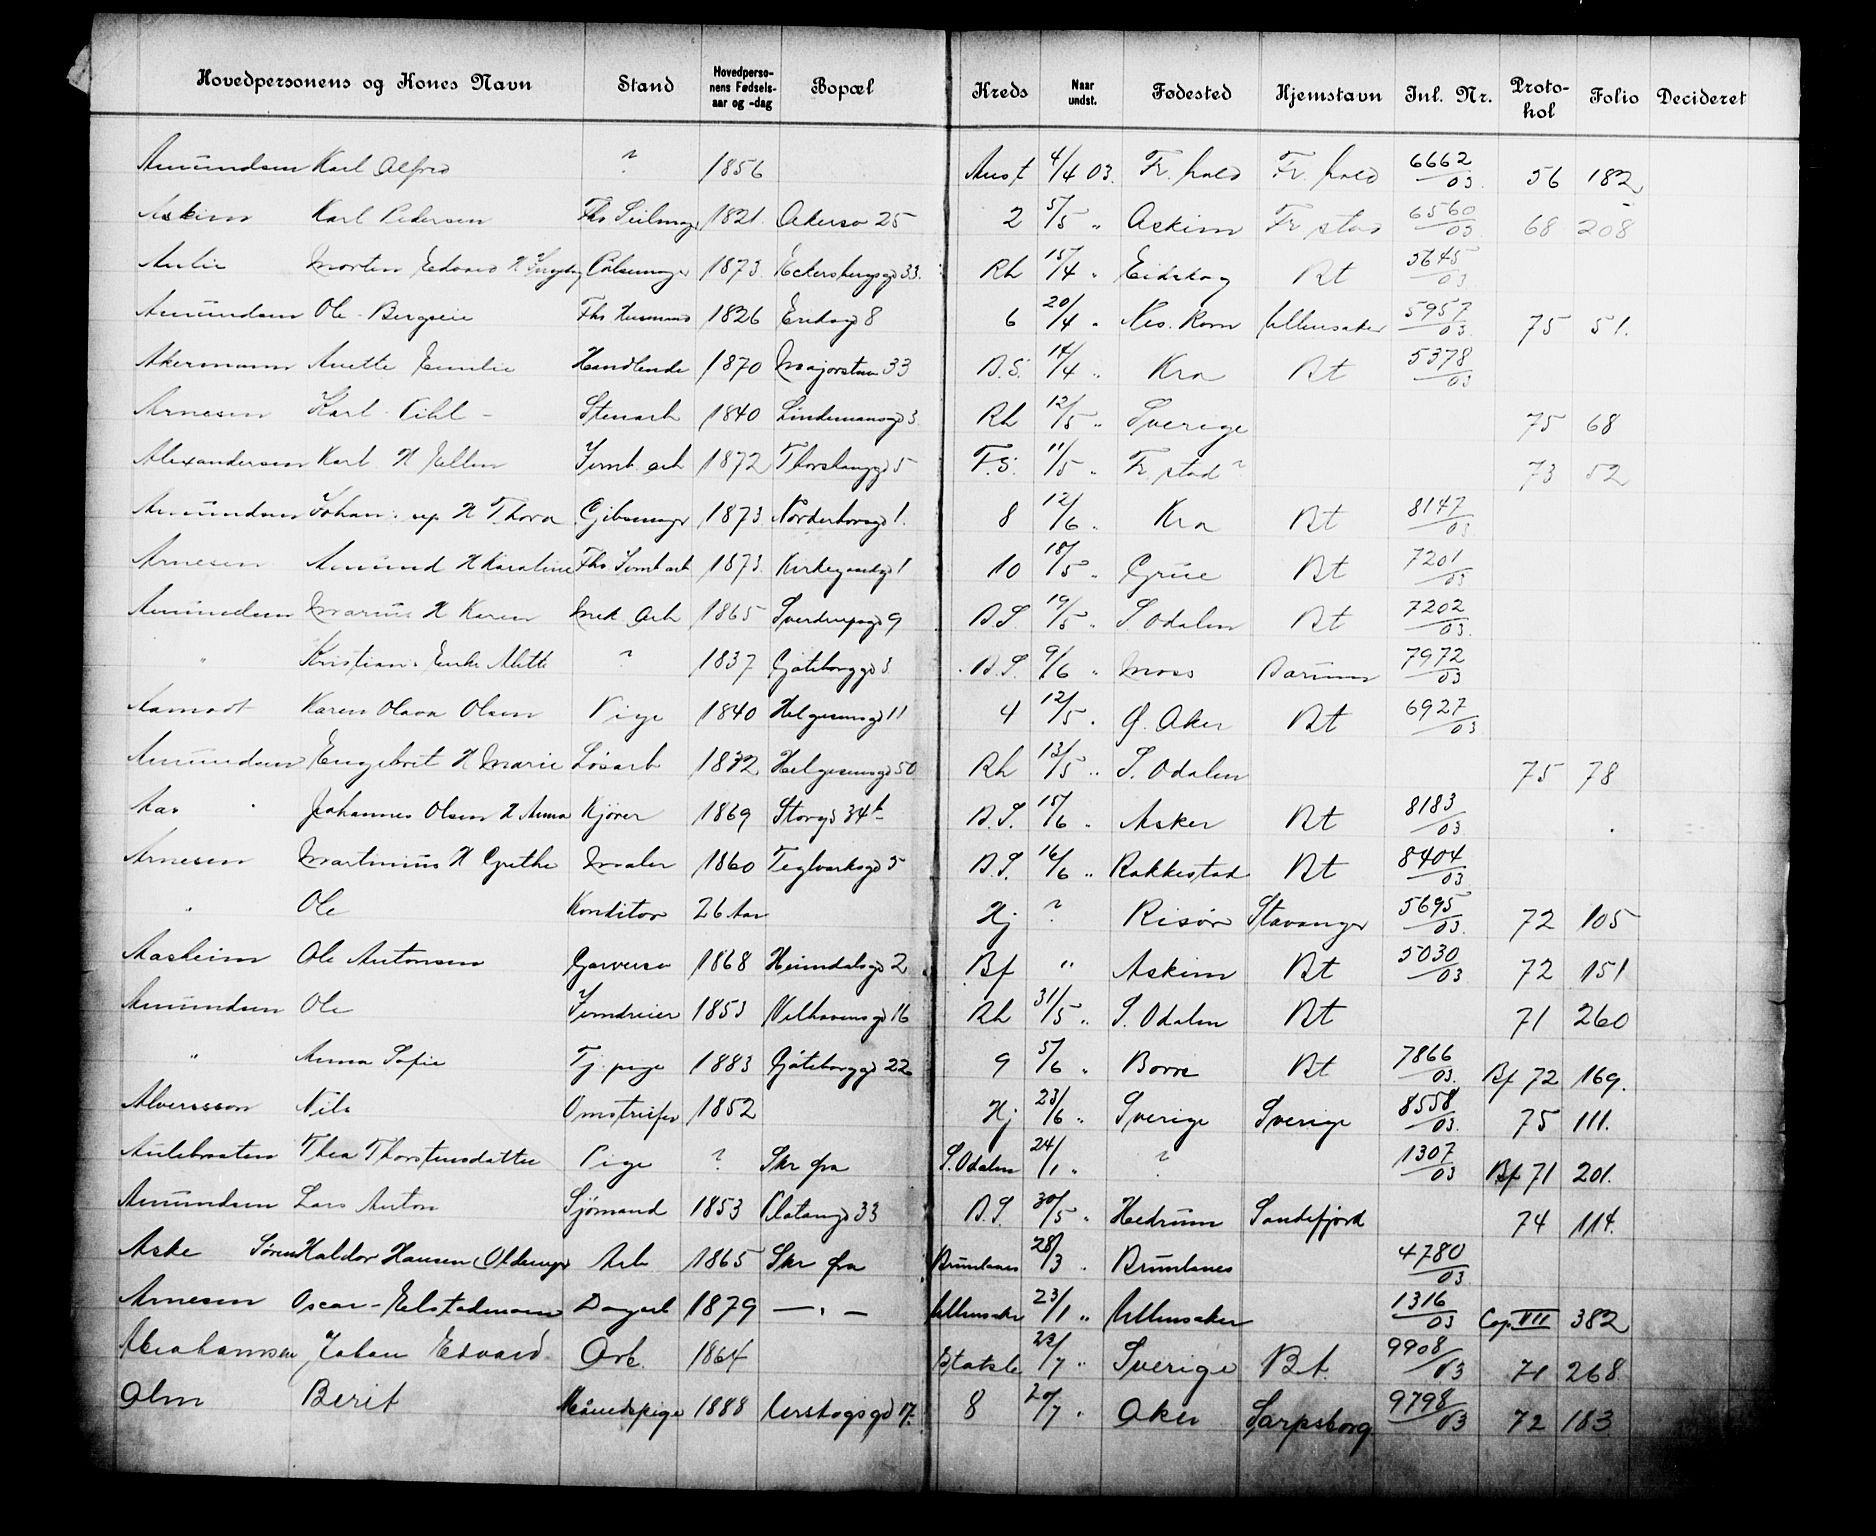 Hovedpersonens og Kones Navn Stand Hovedpersonens Fødselsaar og -dag Bopæl Kreds Naar undst. Fødested Hjemstavn Inl. Nr. Protokol Folio Decideret
Amundsen Karl Alfred ? 1856 Anst 4/4 03. Fr. hald Fr. hald 6662/03 56 182
Askim Karl Pedersen Fhv Seilmager 1821 Akersv 25 2 5/5 " Askim Fr stad 6560/03 68 208
Aulie Morten Edvard H Pølsemager 1873 Eckersbergsgd 33 Rh 15/4 " Eidskog Bt 5645/03
Amundsen Ole Bergseie Fhv Husmand 1826 Enebgd 8 6 20/4 " Nes. Rom Ullensaker 5957/03 75 51.
Akermann Anette Emilie Handlende 1870 Majorstuv 33 B.S. 14/4 " Kra Bt 5378/03
Arnesen Karl Pihl - Stenarb 1840 Lindemansgd 3 Rh 12/5 " Sverige 75 68
Alexandersen Karl H Ellen Jernb. arb 1872 Thorsbyggd 5 F.S. 11/5 " Fr. stad ? 73 52
Amundsen Johan H Thora Gibsmager 1873 Norderhovsgd 1. 8 12/6 " Kra Bt 8147/03
Arnesen Amund H Karoline Fhv Jernb arb 1873. Kirkegaardsgd 1 10 18/5 " Grue Bt 7201/03
Amundsen Marius H Karen Mek Arb 1865 Sverdrupsgd 9 B.S. 19/5 " S. Odalen Bt 7202/03
" Kristian. Enke Mette ? 1837 Gøteborggd 3 B.S. 9/6 " Moss Bærum 7972/03
Aamodt Karen Olava Olsen Pige 1840 Helgesensgd 11 4 12/5 " Ø. Aker Bt 6927/03
Amundsen Engebret H Marie Løsarb 1872 Helgesensgd 50 Rh 13/5 " S. Odalen 75 78
Aas Johannes Olsen H Anna Kjører 1869 Storgd 34b B.S. 15/6 " Asker Bt 8183/03
Arnesen Martinius H Grethe Maler 1860 Teglverksgd 5 B.S. 16/6 " Rakkestad Bt 8404/03
" Ole Konditor 26 Aar Hj ? Risør Stavanger 5695/03 72 105
Aasheim Ole Antonsen Garversv 1868 Heimdalsgd 2 Bf " Askim Bt 5030/03 72 151
Amundsen Ole Jerndreier 1853 Welhavensgd 16 Rh 31/5 " S. Odalen Bt 71 260
" Anna Sofie Tj. pige 1883 Gøteborggd 22 9 5/6 " Borre Bt 7866/03. Bf 72 169.
Alversson Nils Omstreifer 1852 Hj 23/6 " Sverige Sverige 8558/03. 75 111.
Aulebraaten Thea Thorstensdatter Pige ? Skr fra S. Odalen 24/1 " ? 1307/03 Bf 71 201.
Amundsen Lars Anton Sjømand 1853 Platousgd 33 B.S. 30/5 " Hedrum Sandefjord 74 114.
Aske Søren Haldor Hansen Arb 1865 Skr fra Brunlanes 28/3 " Brunlanes 4780/03
Arnesen Oscar - Elstadmoen Dagarb 1879 — " — Ullensaker 23/1 " Ullensaker 1316/03 Cop. VII 382
Abrahamsen Johan Edvard Arb. 1864 Btatsb 22/7 " Sverige Bt. 9908/03 71 268
Alm Berit Maanedspige 1888 Ullevogsgd 17. 8 20/7 " Aker Sarpsborg 9798/03 72 183